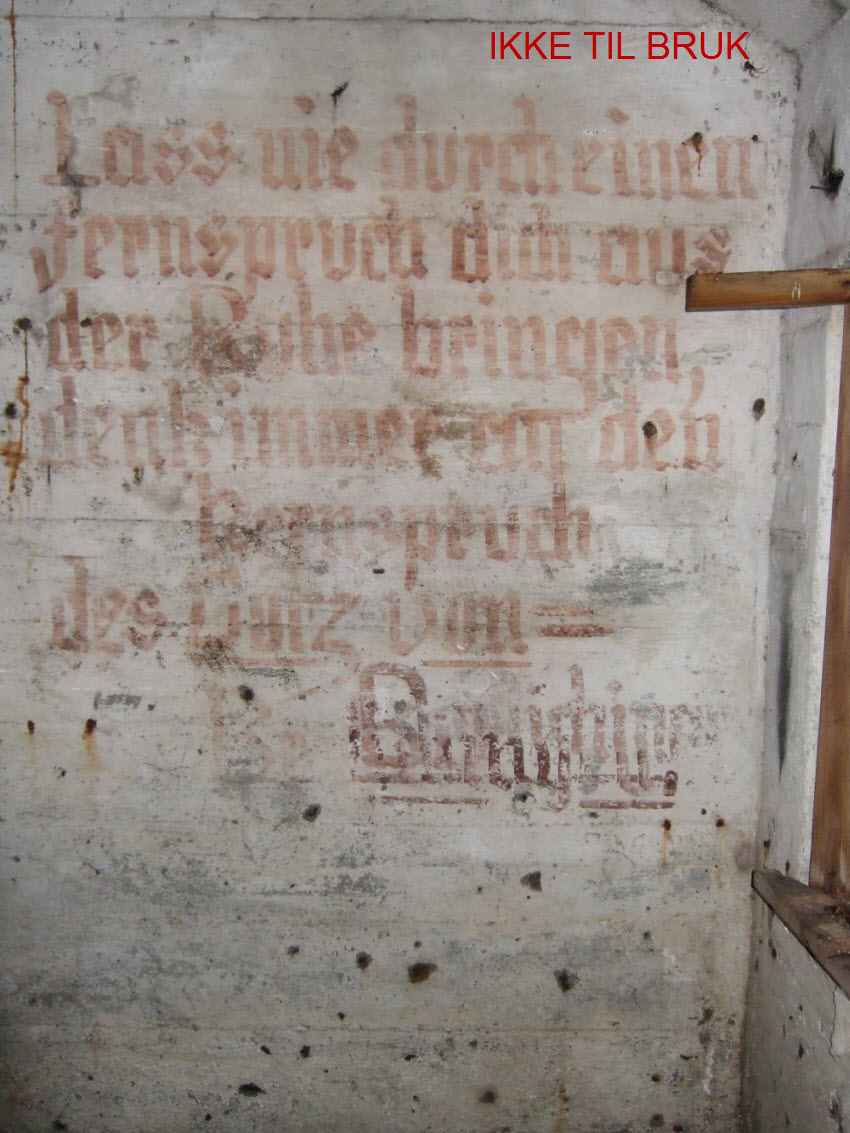 IKKE TIL BRUK
Lass nie durch einen
fernspruch dich aus
der Ruhe bringen,
denk immer an den
Kernspruch
des Götz von =
Berlichingen